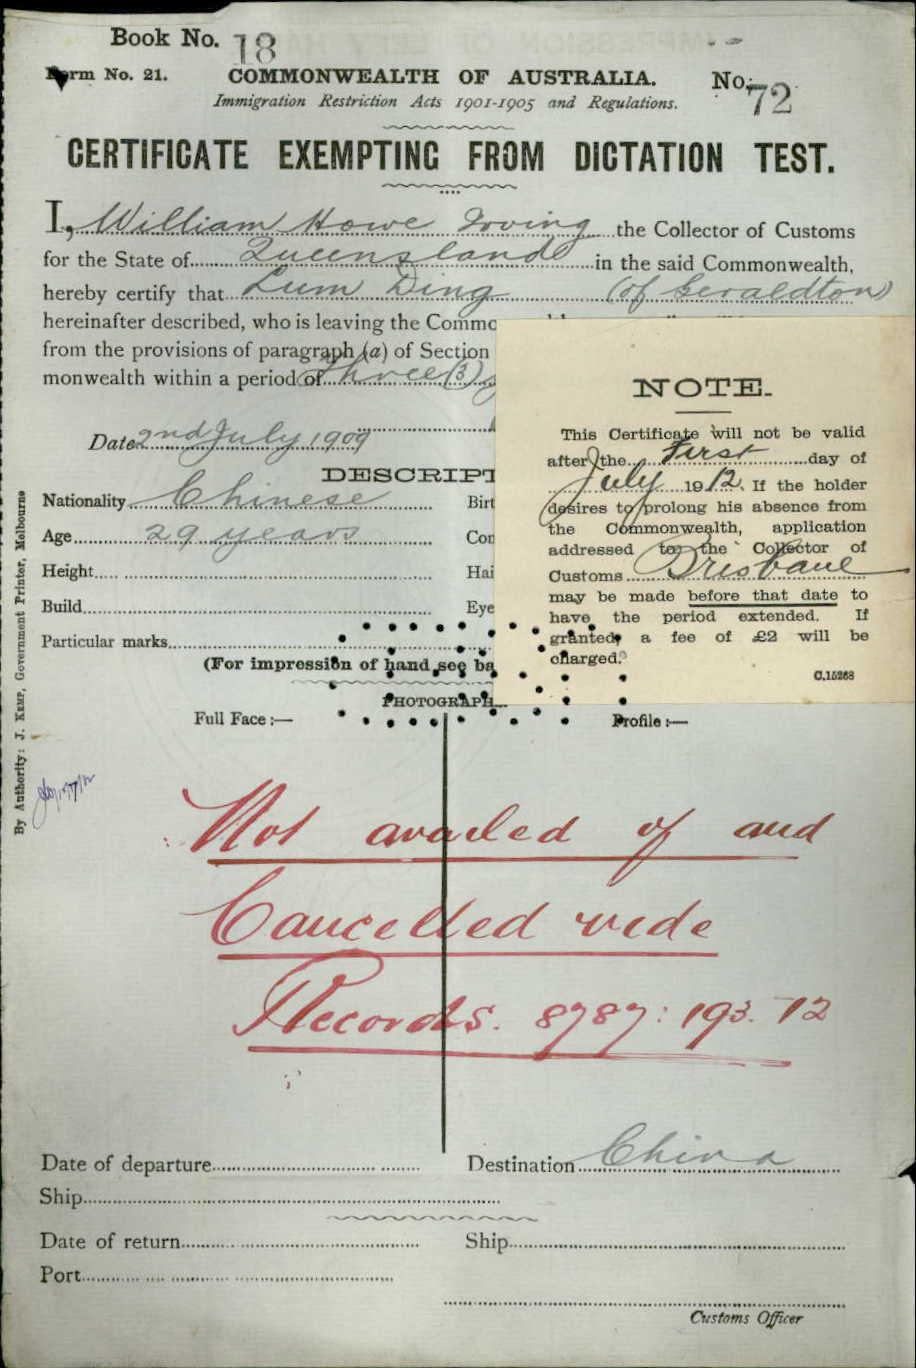 Book No. 18
Form No. 21.
COMMONWEALTH OF AUSTRALIA.
No. 72
Immigration Restriction Acts 1901-1905 and Regulations.
CERTIFICATE EXEMPTING FROM DICTATION TEST.
I, William Howe Irving the Collector of Customs
for the State of Queensland in the said Commonwealth,
hereby certify that Lum Ding (of Geraldton)
hereinafter described, who is leaving the Commo
from the provisions of paragraph (a) of Section
monwealth within a period of Three (3)
Date 2nd July 1909
DESCRIPT
Nationality Chinese Birt
Age 29 years Con
Height Hai
Build Eye
Particular marks
(For impression of hand see ba
PHOTOGRAPH
Full Face :— Profile :—
NOTE.
This Certificate will not be valid
after the First day of
July 1912. If the holder
desires to prolong his absence from
the Commonwealth, application
addressed to the Collector of
Customs Brisbane
may be made before that date to
have the period extended. If
granted, a fee of £2 will be
charged.
C.15268
By Authority: J. KEMP, Government Printer, Melbourne
Not availed of and
Cancelled vide
Records. 8787: 193. 12
Date of departure Destination China
Ship
Date of return Ship
Port
Customs Officer